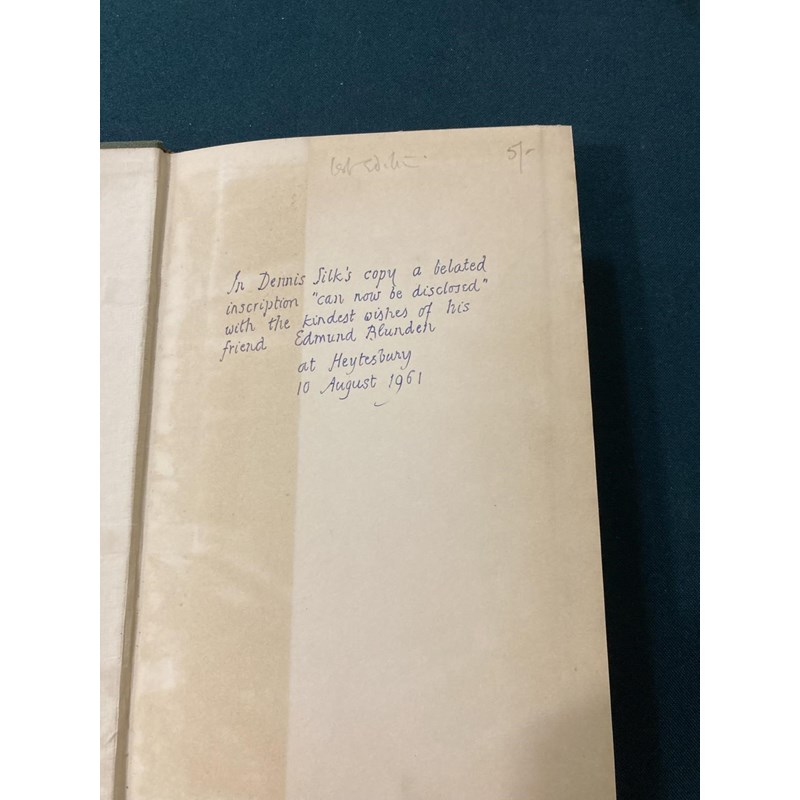 1st Edition
5/-
In Dennis Silk's copy a belated
inscription "can now be disclosed"
with the kindest wishes of his
friend Edmund Blunden
at Heytesbury
10 August 1961